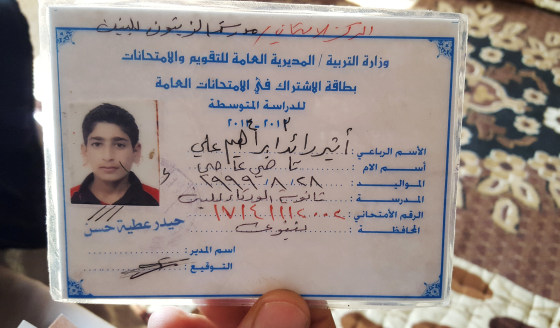 المركز الامتحاني / مدرسة الزيتون للبنين
وزارة التربية / المديرية العامة للتقويم والامتحانات
بطاقة الاشتراك في الامتحانات العامة
للدراسة المتوسطة
٢٠١٢ - ٢٠١٣
الأسم الرباعي: أثير رائد ابراهيم علي
أسم الام :
المواليد : ١٩٩٩/٨/٢٨
المدرسة : ثانوية للبنين
الرقم الأمتحاني: ١٧١٤١١١٢٠٠٢
المحافظة : نينوى
اسم المدير :
حيدر عطية حسن
التوقيع :